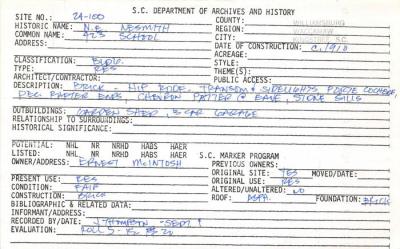 S.C. DEPARTMENT OF ARCHIVES AND HISTORY
SITE NO.: 2A-100
COUNTY: WILLIAMSBURG
HISTORIC NAME: N.E. NESMITH
REGION: WACCAMAW
COMMON NAME: 423 SCHOOL
CITY: KINGSTREE, SC
ADDRESS:
DATE OF CONSTRUCTION: C. 1910
ACREAGE:
CLASSIFICATION: BLDG.
STYLE:
TYPE: RES
THEME(S):
ARCHITECT/CONTRACTOR:
PUBLIC ACCESS:
DESCRIPTION: BRICK - HIP ROOF, TRANSOM & SIDELIGHTS PORTE COCHERE,
DEC. RAFTER ENDS, CHEVRON PATTER @ EAVE, STONE SILLS
OUTBUILDINGS: GARDEN SHED, 3 CAR GARAGE
RELATIONSHIP TO SURROUNDINGS:
HISTORICAL SIGNIFICANCE:
POTENTIAL: NHL NR NRHD HABS HAER
LISTED: NHL NR NRHD HABS HAER
S.C. MARKER PROGRAM
OWNER/ADDRESS: ERNEST McINTOSH
PREVIOUS OWNERS:
ORIGINAL SITE: YES MOVED/DATE:
PRESENT USE: RES
ORIGINAL USE: RES
CONDITION: FAIR
ALTERED/UNALTERED: NO
CONSTRUCTION: BRICK
ROOF: ASPH. FOUNDATION: BRICK
BIBLIOGRAPHIC & RELATED DATA:
INFORMANT/ADDRESS:
RECORDED BY/DATE: J. THOMPSON - SEPT.
EVALUATION: ROLL 5-